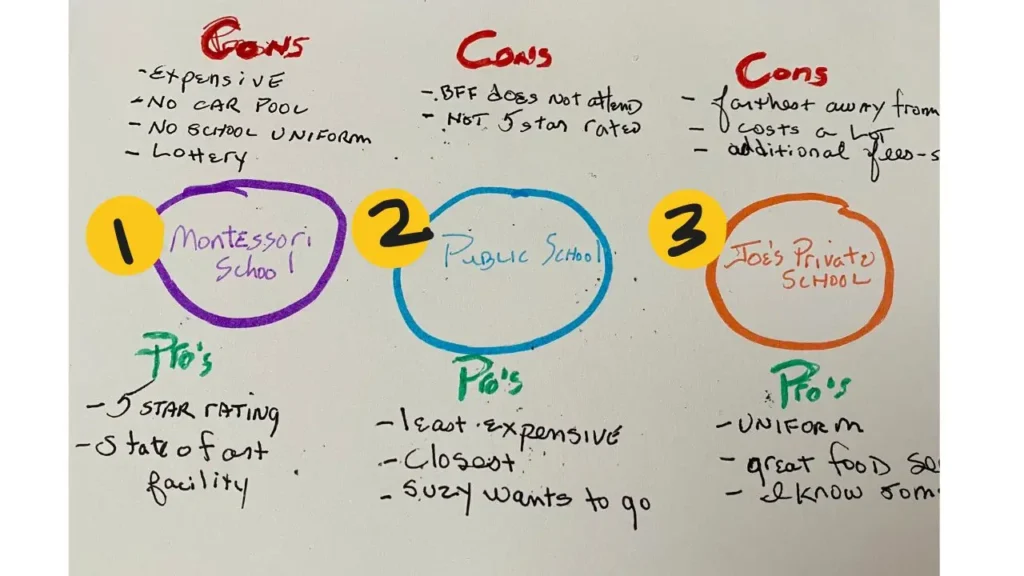 Cons
- Expensive
- NO CAR POOL
- NO SCHOOL UNIFORM
- Lottery
1
Montessori
School
Pro's
- 5 STAR RATING
- State of art
facility
Cons
- BFF does not attend
- NOT 5 star rated
2
PUBLIC SCHOOL
Pro's
- least expensive
- Closest
- Suzy wants to go
Cons
- farthest away from
- costs a LOT
- additional fees-s
3
JOE'S Private
SCHOOL
Pro's
- UNIFORM
- great food se
- I know som